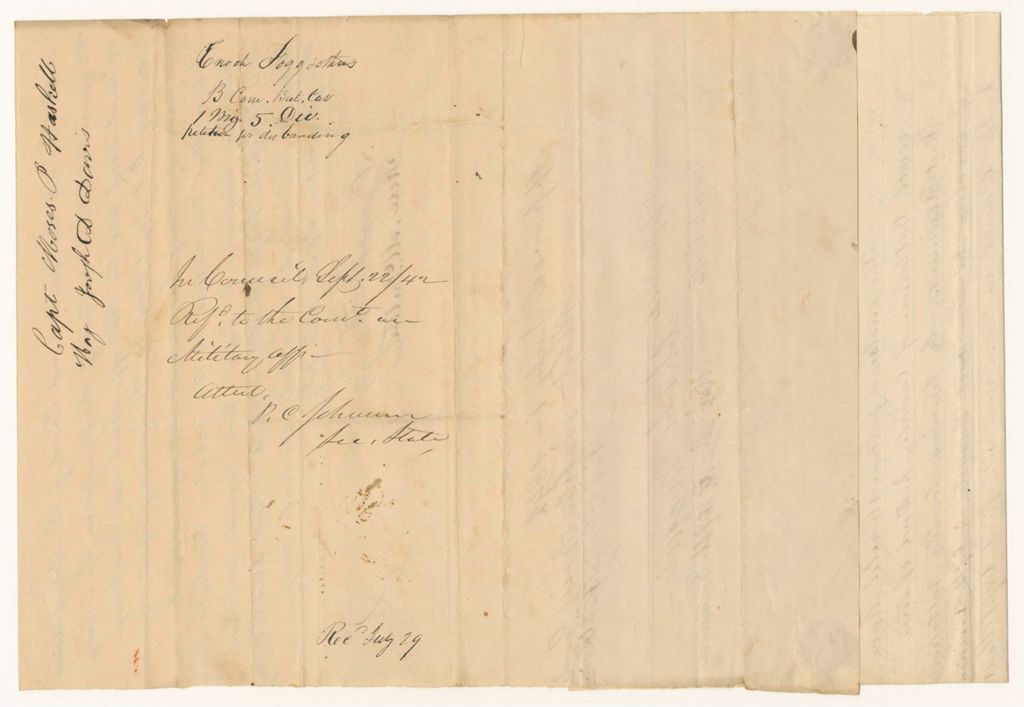 Enoch Fogg & others
B Com. Bat. Cav
1 Brig. 5. Div.
petition for disbanding
In Council, Sept. 22/42
Refd. to the Comt. on
Military Aff
Attest,
P. C. Johnson
Sec. State
Recd July 29
Capt Moses P Haskell
Maj Joseph D Davis